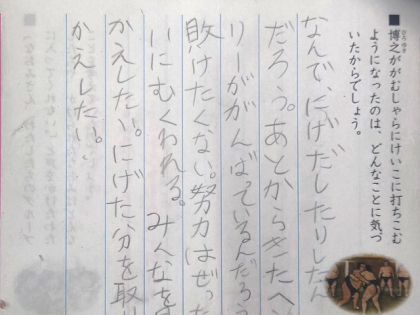 ■博之ががむしゃらにけいこに打ちこむ
ようになったのは、どんなことに気づ
いたからでしょう。
なんで、にげだしたりしたん
だろう。あとからきたヘ
リーががんばっているんだろう
敗けたくない。努力はぜった
いにむくわれる。みんなを
かえしたい。にげた分を取り
かえしたい。